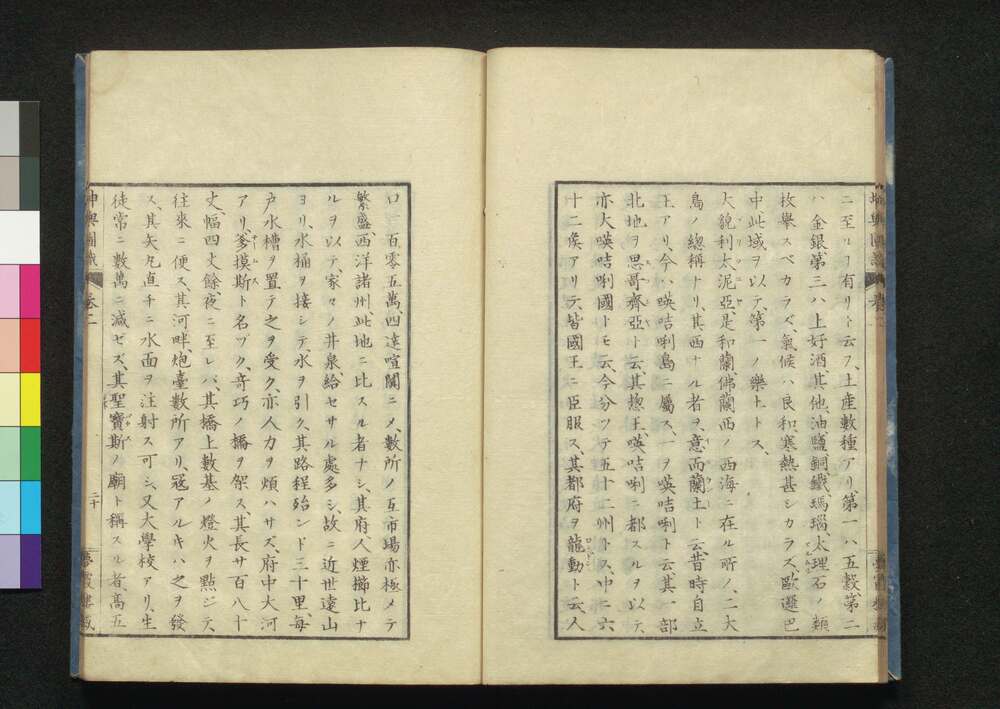 ニ至ルヿ有リト云フ、土産數種アリ、第一ハ五穀、第二
ハ金銀、第三ハ上好酒其他、油鹽銅鐵、瑪瑙、太理石ノ類
枚擧スベカラズ、氣候ハ良和、寒熱甚シカラズ、歐邏巴
中此域ヲ以テ、第一ノ樂土トス、
大貌利太泥亞、是和蘭、佛蘭西ノ西海ニ在ル所ノ、二大
島ノ總稱ナリ、其西ナル者ヲ、意而蘭土ト云、昔時自立
王アリ、今ハ暎咭唎島ニ屬ス、一ヲ暎咭唎ト云、其一部
北地ヲ思哥齊亞ト云、其惣王、暎咭唎ニ都スルヲ以テ、
亦大暎咭唎國トモ云、今分ツテ五十二州トス、中ニ六
十二侯アリテ、皆國王ニ臣服ス、其都府ヲ龍動ト云、人
坤輿圖識 卷二
口一百零五萬、四達喧闐ニメ、數所ノ互市場亦極メテ
繁盛、西洋諸州、此地ニ比スル者ナシ、其府、人煙櫛比ナ
ルヲ以テ、家々ノ井泉給セサル處多シ、故ニ近世遠山
ヨリ、水桶ヲ接シテ、水ヲ引ク、其路程殆ンド三十里、每
户水槽ヲ置テ之ヲ受ク、亦人力ヲ煩ハサズ、府中大河
アリ、爹摸斯ト名ブク、奇巧ノ橋ヲ架ス、其長サ百八十
丈、幅四丈餘、夜ニ至レバ、其橋上數基ノ燈火ヲ點ジテ、
往來ニ便ス、其河畔、炮臺數所アリ、寇アルキハ之ヲ發
ス、其矢丸直チニ水面ヲ注射ス可シ、又大學校アリ、生
徒常ニ數萬ニ減セズ、其聖寶斯ノ廟ト稱スル者、高五
坤輿圖識 卷二 二十